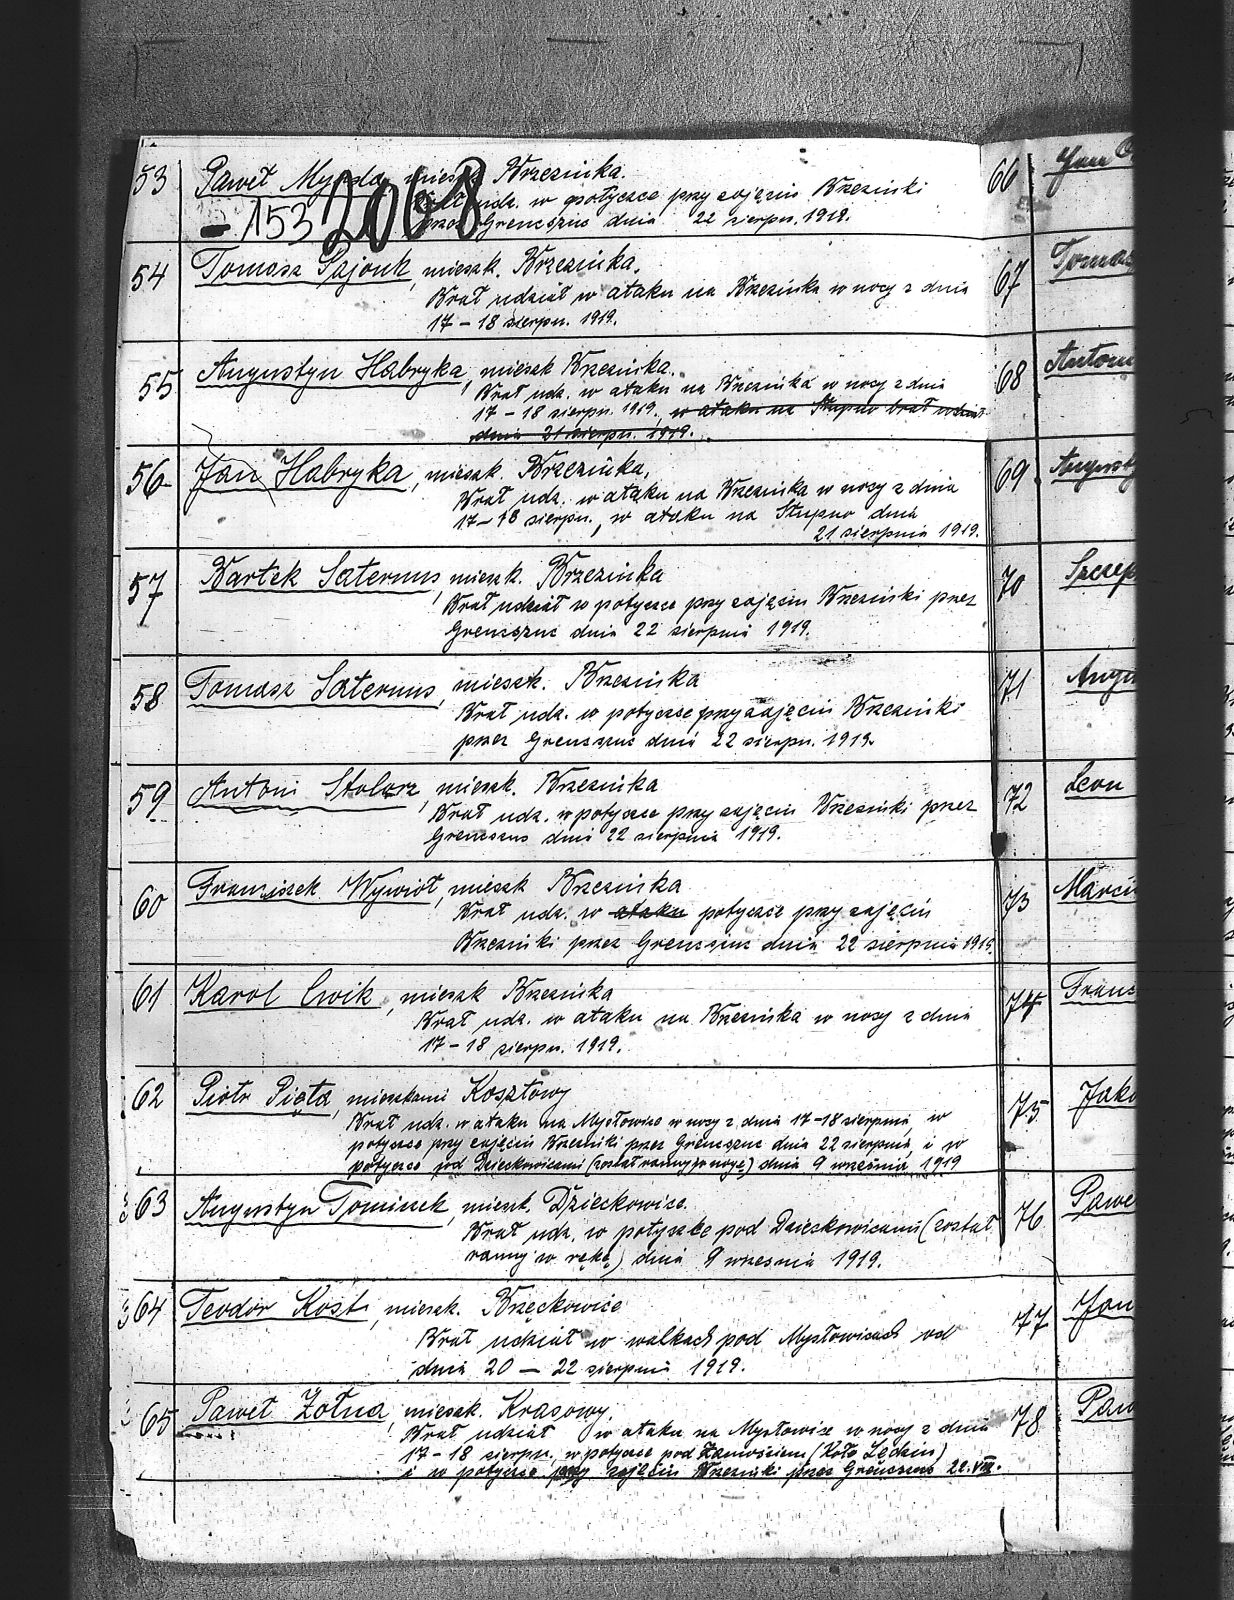 53 Paweł Mynda, mieszk. Brzezinka.
Brał udz. w potyczce przy zajęciu Brzezinki
przez Grenszuc dnia 22 sierpn. 1919.
153 2068
54 Tomasz Pajonk, mieszk. Brzezinka.
Brał udział w ataku na Brzezinka w nocy z dnia
17 – 18 sierpn. 1919.
55 Augustyn Habryka, mieszk Brzezinka.
Brał udz. w ataku na Brzezinka w nocy z dnia
17 – 18 sierpn. 1919. w ataku na Słupno brał udział
dnia 21 sierpn. 1919.
56 Jan Habryka, mieszk. Brzezinka.
Brał udz. w ataku na Brzezinka w nocy z dnia
17 – 18 sierpn., w ataku na Słupno dnia
21 sierpnia 1919.
57 Bartek Saternus, mieszk. Brzezinka
Brał udział w potyczce przy zajęciu Brzezinki przez
Grenszuc dnia 22 sierpnia 1919.
58 Tomasz Saternus, mieszk. Brzezinka
Brał udz. w potyczce przy zajęciu Brzezinki
przez Grenszuc dnia 22 sierpn. 1919.
59 Antoni Stolarz, mieszk. Brzezinka
Brał udz. w potyczce przy zajęciu Brzezinki przez
Grenszuc dnia 22 sierpnia 1919.
60 Franciszek Wywioł, mieszk Brzezinka
Brał udz. w ataku potyczce przy zajęciu
Brzezinki przez Grenszuc dnia 22 sierpnia 1919
61 Karol Cwik, mieszk Brzezinka
Brał udz. w ataku na Brzezinka w nocy z dnia
17 – 18 sierpn. 1919.
62 Piotr Pięta, mieszkani Kosztowy
Brał udz. w ataku na Mysłowice w nocy z dnia 17–18 sierpnia, w
potyczce przy zajęciu Brzezinki przez Grenszuc dnia 22 sierpnia, i w
potyczce pod Dzieckowicami (został ranny w nogę) dnia 9 września 1919
63 Augustyn Tominek, mieszk. Dzieckowice.
Brał udz. w potyczce pod Dzieckowicami (został
ranny w rękę) dnia 9 wrzesnia 1919.
64 Teodor Kost, mieszk. Brzęckowice
Brał udział w walkach pod Mysłowicach od
dnia 20 – 22 sierpnia 1919.
65 Paweł Żołna, mieszk. Krasowy.
Brał udział w ataku na Mysłowice w nocy z dnia
17 – 18 sierpn., w potyczce pod Zamościem (koło Lędzin)
i w potyczce przy zajęciu Brzezinki przez Grenszuc 22. VIII.
66 Jan
67 Tomasz
68 Anton
69 Augusty
70 Szczep
71 Augu
72 Leon
73 Marci
74 Franc
75 Jako
76 Pawe
77 Jan
78 Paw